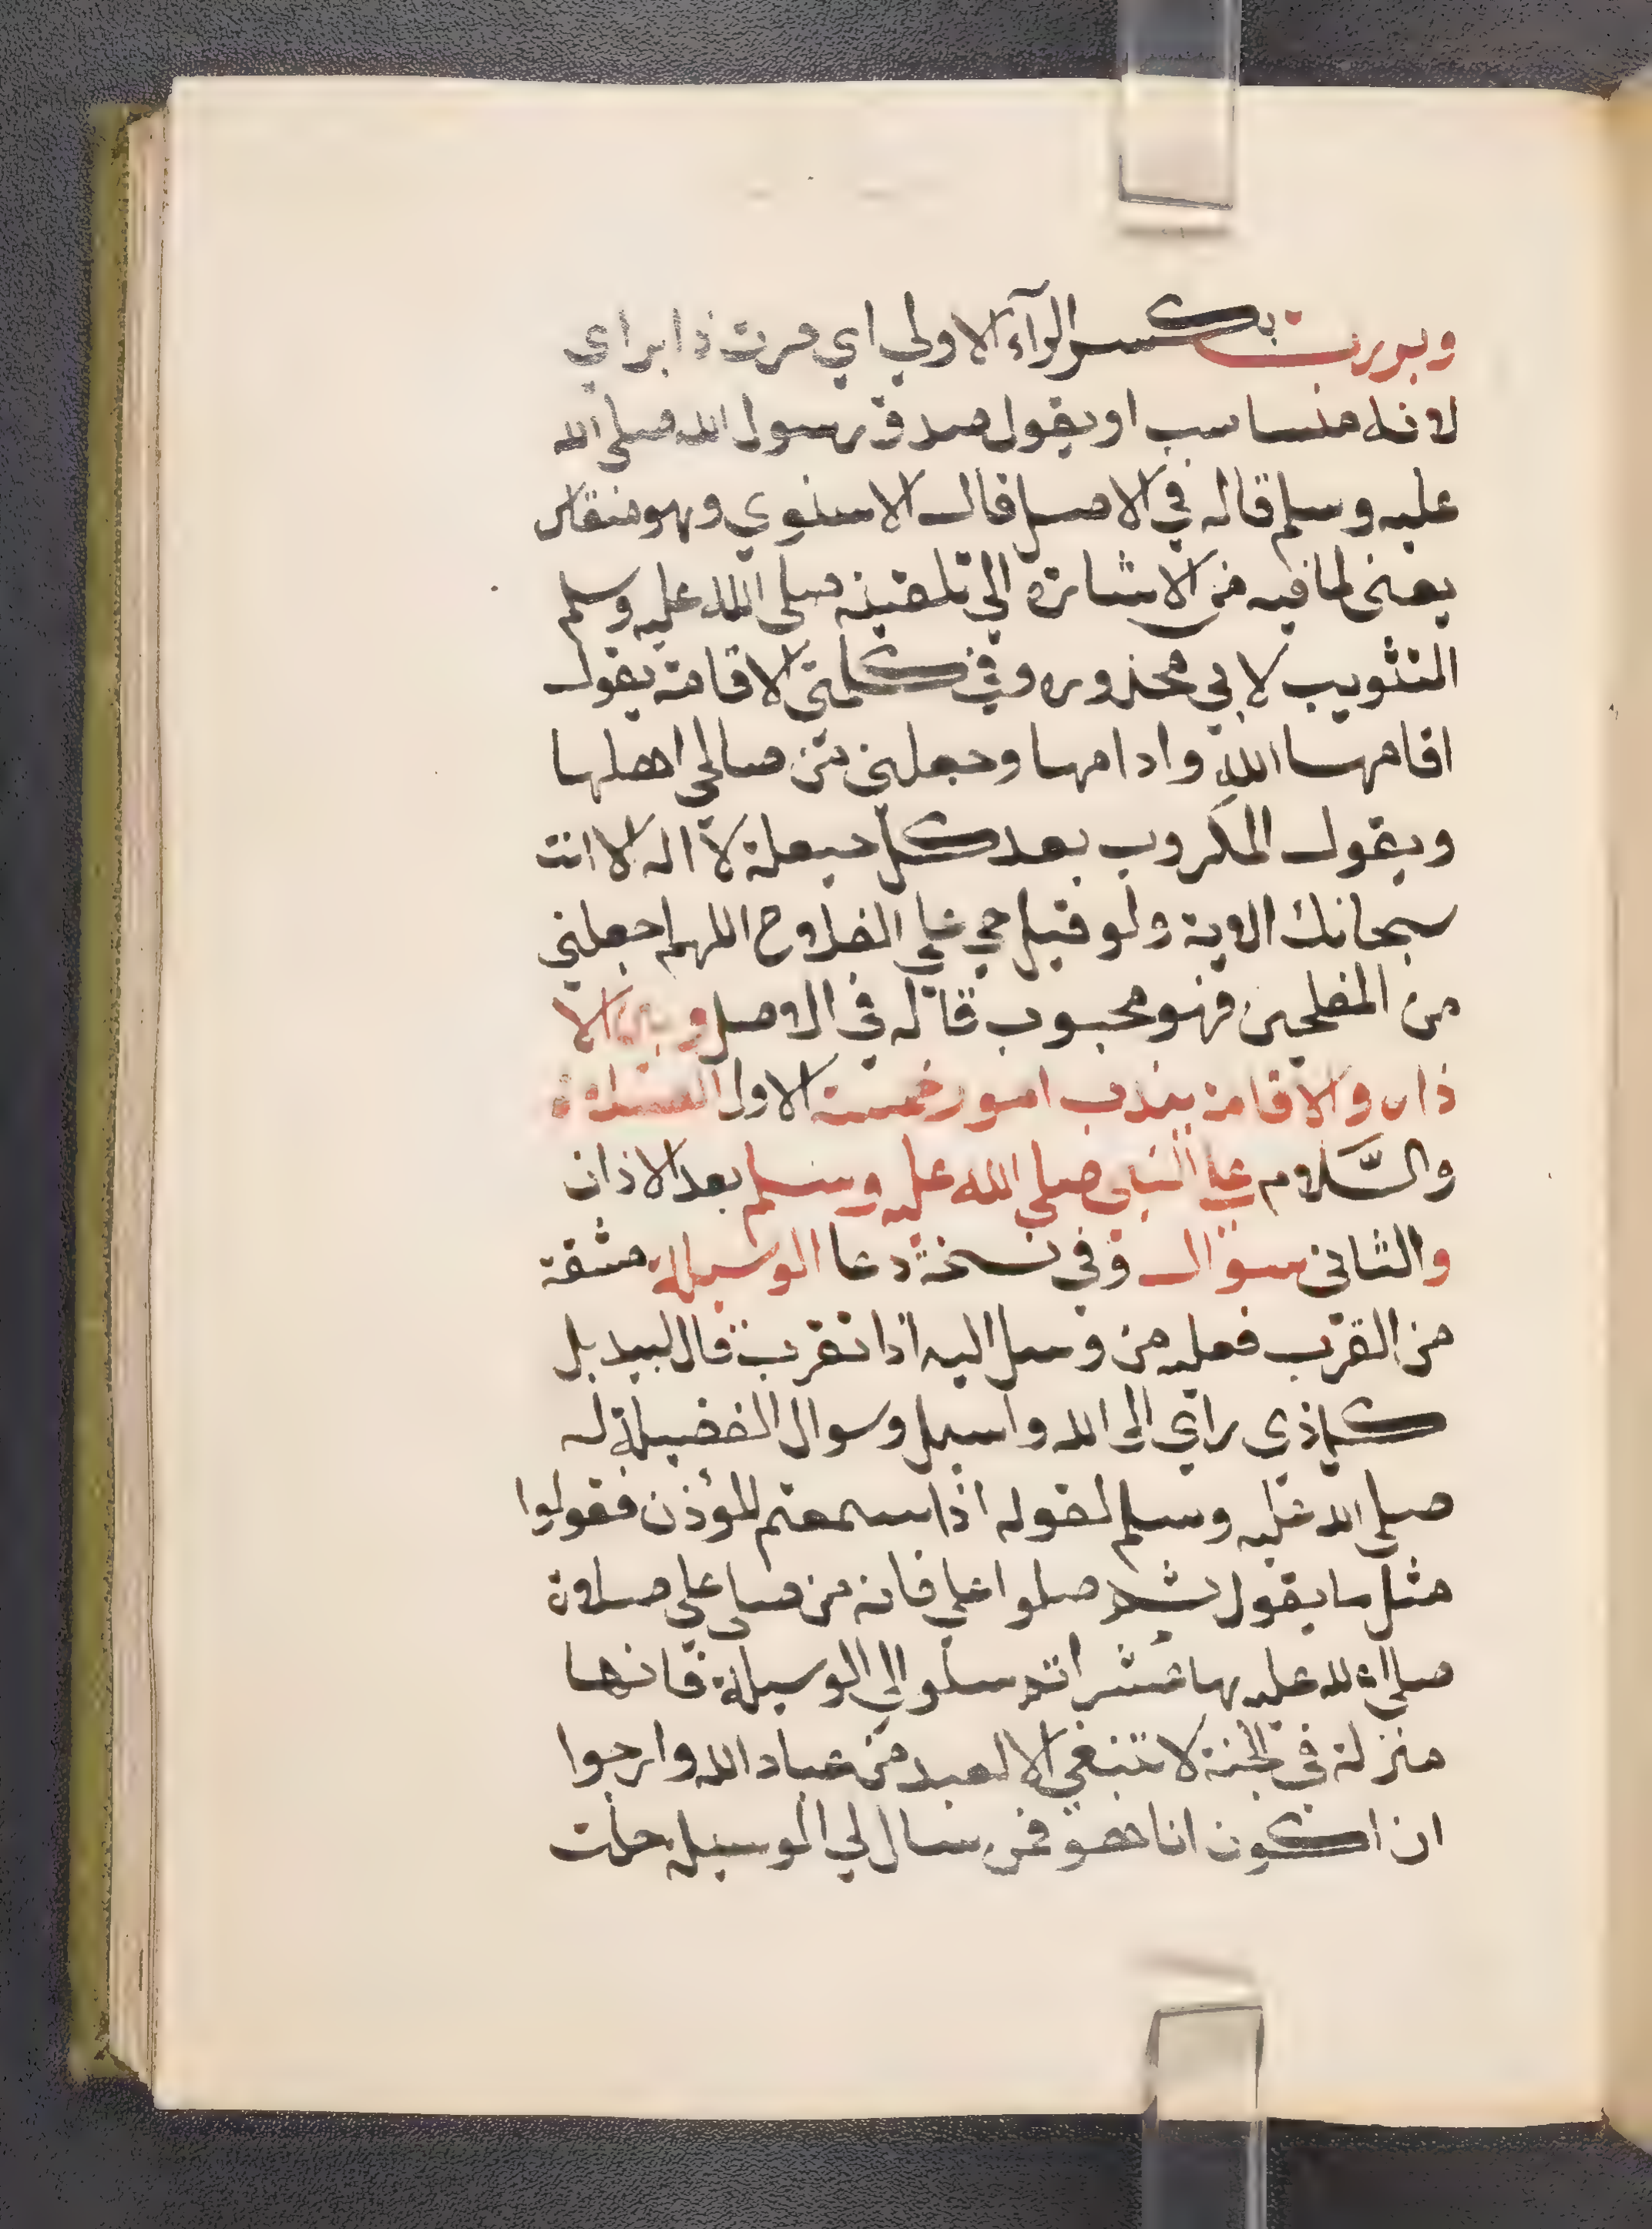 وبررت بكسر الرآء الاولي اي صرت ذا براي
لانه مناسب او يقول صدق رسول الله صلي الله
عليه وسلم قاله في الاصل قال الاسنوي وهو متقار
يعني لما فيه من الاشارة الي تلقينه صلي الله عليه وسلم
التثويب لابي محذوره وفي كلمتي الاقامة يقول
اقامها الله وادامها وجعلني من صالحي اهلها
ويقول المكروب بعد كل حيعلة لا اله الا انت
سبحانك الاية ولو قيل حي علي الفلاح اللهم اجعلني
من المفلحين فهو محبوب قاله في الاصل و الا
ذان والاقامة يندب امور خمسة الاول الصلاة
والسَّلام علي النبي صلي الله عليه وسلم بعد الاذان
والثاني سوال وفي نسخة دعا الوسيلة مشقة
من القرب فعليه من وسل اليه اذا تقرب قال لبيد بل
كل ذي راي الي الله واسيل وسوال الفضيلة له
صلي الله عليه وسلم لقوله اذا سمعتم المؤذن فقولوا
مثل ما يقول ثم صلوا علي فانه من صلي علي صلاة
صلي الله عليه بها عشرا ثم سلوا لي الوسيلة فانها
منزلة في الجنة لا تنبغي الا لعبد من عباد الله وارجوا
ان اكون انا هو فمن سال لي الوسيله حلت